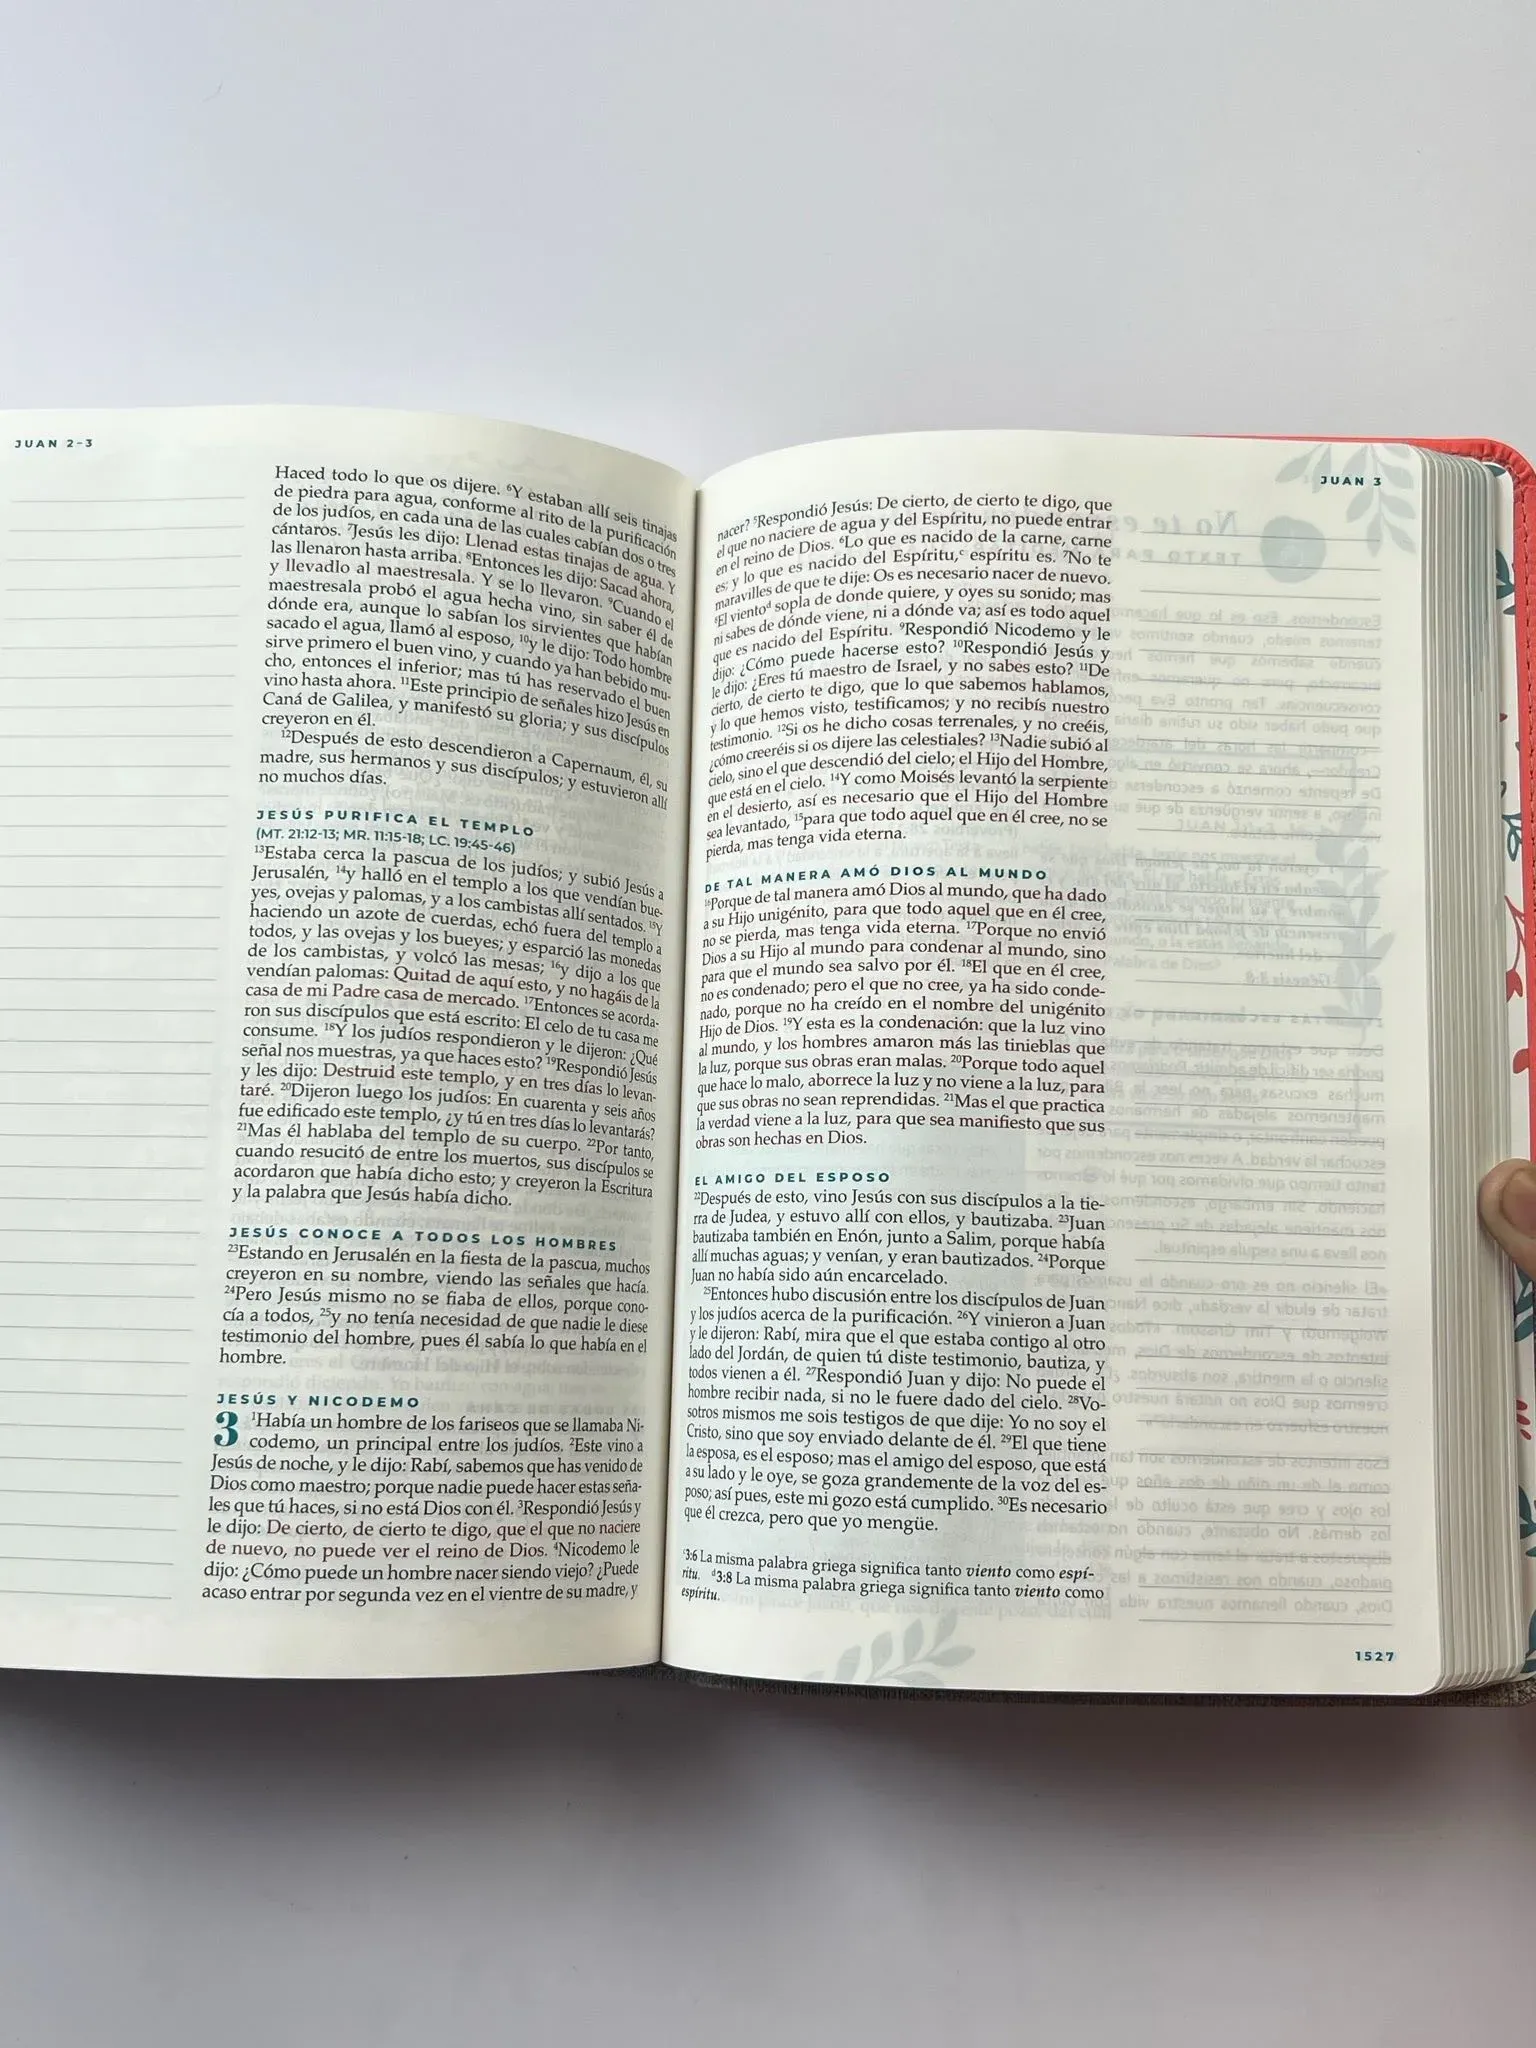 JUAN 2-3
Haced todo lo que os dijere. ⁶Y estaban allí seis tinajas
de piedra para agua, conforme al rito de la purificación
de los judíos, en cada una de las cuales cabían dos o tres
cántaros. ⁷Jesús les dijo: Llenad estas tinajas de agua. Y
las llenaron hasta arriba. ⁸Entonces les dijo: Sacad ahora,
y llevadlo al maestresala. Y se lo llevaron. ⁹Cuando el
maestresala probó el agua hecha vino, sin saber él de
dónde era, aunque lo sabían los sirvientes que habían
sacado el agua, llamó al esposo, ¹⁰y le dijo: Todo hombre
sirve primero el buen vino, y cuando ya han bebido mu-
cho, entonces el inferior; mas tú has reservado el buen
vino hasta ahora. ¹¹Este principio de señales hizo Jesús en
Caná de Galilea, y manifestó su gloria; y sus discípulos
creyeron en él.
¹²Después de esto descendieron a Capernaum, él, su
madre, sus hermanos y sus discípulos; y estuvieron allí
no muchos días.
JESÚS PURIFICA EL TEMPLO
(MT. 21:12-13; MR. 11:15-18; LC. 19:45-46)
¹³Estaba cerca la pascua de los judíos; y subió Jesús a
Jerusalén, ¹⁴y halló en el templo a los que vendían bue-
yes, ovejas y palomas, y a los cambistas allí sentados. ¹⁵Y
haciendo un azote de cuerdas, echó fuera del templo a
todos, y las ovejas y los bueyes; y esparció las monedas
de los cambistas, y volcó las mesas; ¹⁶y dijo a los que
vendían palomas: Quitad de aquí esto, y no hagáis de la
casa de mi Padre casa de mercado. ¹⁷Entonces se acorda-
ron sus discípulos que está escrito: El celo de tu casa me
consume. ¹⁸Y los judíos respondieron y le dijeron: ¿Qué
señal nos muestras, ya que haces esto? ¹⁹Respondió Jesús
y les dijo: Destruid este templo, y en tres días lo levan-
taré. ²⁰Dijeron luego los judíos: En cuarenta y seis años
fue edificado este templo, ¿y tú en tres días lo levantarás?
²¹Mas él hablaba del templo de su cuerpo. ²²Por tanto,
cuando resucitó de entre los muertos, sus discípulos se
acordaron que había dicho esto; y creyeron la Escritura
y la palabra que Jesús había dicho.
JESÚS CONOCE A TODOS LOS HOMBRES
²³Estando en Jerusalén en la fiesta de la pascua, muchos
creyeron en su nombre, viendo las señales que hacía.
²⁴Pero Jesús mismo no se fiaba de ellos, porque cono-
cía a todos, ²⁵y no tenía necesidad de que nadie le diese
testimonio del hombre, pues él sabía lo que había en el
hombre.
JESÚS Y NICODEMO
3 ¹Había un hombre de los fariseos que se llamaba Ni-
codemo, un principal entre los judíos. ²Este vino a
Jesús de noche, y le dijo: Rabí, sabemos que has venido de
Dios como maestro; porque nadie puede hacer estas seña-
les que tú haces, si no está Dios con él. ³Respondió Jesús y
le dijo: De cierto, de cierto te digo, que el que no naciere
de nuevo, no puede ver el reino de Dios. ⁴Nicodemo le
dijo: ¿Cómo puede un hombre nacer siendo viejo? ¿Puede
acaso entrar por segunda vez en el vientre de su madre, y
JUAN 3
nacer? ⁵Respondió Jesús: De cierto, de cierto te digo, que
el que no naciere de agua y del Espíritu, no puede entrar
en el reino de Dios. ⁶Lo que es nacido de la carne, carne
es; y lo que es nacido del Espíritu,ᶜ espíritu es. ⁷No te
maravilles de que te dije: Os es necesario nacer de nuevo.
⁸El vientoᵈ sopla de donde quiere, y oyes su sonido; mas
ni sabes de dónde viene, ni a dónde va; así es todo aquel
que es nacido del Espíritu. ⁹Respondió Nicodemo y le
dijo: ¿Cómo puede hacerse esto? ¹⁰Respondió Jesús y
le dijo: ¿Eres tú maestro de Israel, y no sabes esto? ¹¹De
cierto, de cierto te digo, que lo que sabemos hablamos,
y lo que hemos visto, testificamos; y no recibís nuestro
testimonio. ¹²Si os he dicho cosas terrenales, y no creéis,
¿cómo creeréis si os dijere las celestiales? ¹³Nadie subió al
cielo, sino el que descendió del cielo; el Hijo del Hombre,
que está en el cielo. ¹⁴Y como Moisés levantó la serpiente
en el desierto, así es necesario que el Hijo del Hombre
sea levantado, ¹⁵para que todo aquel que en él cree, no se
pierda, mas tenga vida eterna.
DE TAL MANERA AMÓ DIOS AL MUNDO
¹⁶Porque de tal manera amó Dios al mundo, que ha dado
a su Hijo unigénito, para que todo aquel que en él cree,
no se pierda, mas tenga vida eterna. ¹⁷Porque no envió
Dios a su Hijo al mundo para condenar al mundo, sino
para que el mundo sea salvo por él. ¹⁸El que en él cree,
no es condenado; pero el que no cree, ya ha sido conde-
nado, porque no ha creído en el nombre del unigénito
Hijo de Dios. ¹⁹Y esta es la condenación: que la luz vino
al mundo, y los hombres amaron más las tinieblas que
la luz, porque sus obras eran malas. ²⁰Porque todo aquel
que hace lo malo, aborrece la luz y no viene a la luz, para
que sus obras no sean reprendidas. ²¹Mas el que practica
la verdad viene a la luz, para que sea manifiesto que sus
obras son hechas en Dios.
EL AMIGO DEL ESPOSO
²²Después de esto, vino Jesús con sus discípulos a la tie-
rra de Judea, y estuvo allí con ellos, y bautizaba. ²³Juan
bautizaba también en Enón, junto a Salim, porque había
allí muchas aguas; y venían, y eran bautizados. ²⁴Porque
Juan no había sido aún encarcelado.
²⁵Entonces hubo discusión entre los discípulos de Juan
y los judíos acerca de la purificación. ²⁶Y vinieron a Juan
y le dijeron: Rabí, mira que el que estaba contigo al otro
lado del Jordán, de quien tú diste testimonio, bautiza, y
todos vienen a él. ²⁷Respondió Juan y dijo: No puede el
hombre recibir nada, si no le fuere dado del cielo. ²⁸Vo-
sotros mismos me sois testigos de que dije: Yo no soy el
Cristo, sino que soy enviado delante de él. ²⁹El que tiene
la esposa, es el esposo; mas el amigo del esposo, que está
a su lado y le oye, se goza grandemente de la voz del es-
poso; así pues, este mi gozo está cumplido. ³⁰Es necesario
que él crezca, pero que yo mengüe.
ᶜ3:6 La misma palabra griega significa tanto viento como espí-
ritu. ᵈ3:8 La misma palabra griega significa tanto viento como
espíritu.
1527